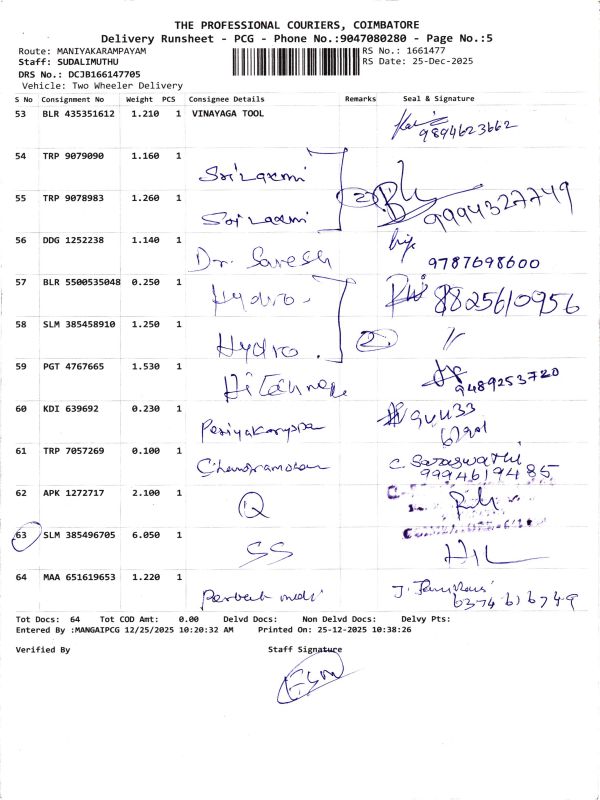 THE PROFESSIONAL COURIERS, COIMBATORE
Delivery Runsheet - PCG - Phone No.:9047080280 - Page No.:5
Route: MANIYAKARAMPAYAM RS No.: 1661477
Staff: SUDALIMUTHU RS Date: 25-Dec-2025
DRS No.: DCJB166147705
Vehicle: Two Wheeler Delivery
S No Consignment No Weight PCS Consignee Details Remarks Seal & Signature
53 BLR 435351612 1.210 1 VINAYAGA TOOL
9894623662
54 TRP 9079090 1.160 1
Sri Laxmi
55 TRP 9078983 1.260 1 2
Sri Laxmi 9994327749
56 DDG 1252238 1.140 1
Dr. Saresh 9787698600
57 BLR 5500535048 0.250 1
Hydro. 8825610956
58 SLM 385458910 1.250 1
Hydro. 2
59 PGT 4767665 1.530 1
9489253720
60 KDI 639692 0.230 1
61 TRP 7057269 0.100 1
C. Saraswathi
9994619485
62 APK 1272717 2.100 1
Q
63 SLM 385496705 6.050 1
SS
64 MAA 651619653 1.220 1
6374616749
Tot Docs: 64 Tot COD Amt: 0.00 Delvd Docs: Non Delvd Docs: Delvy Pts:
Entered By :MANGAIPCG 12/25/2025 10:20:32 AM Printed On: 25-12-2025 10:38:26
Verified By Staff Signature